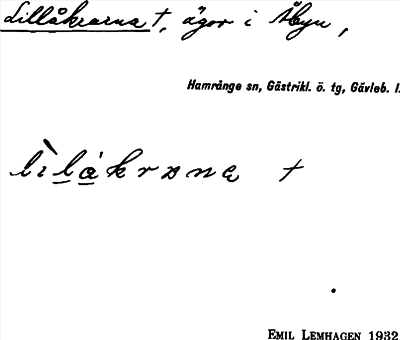 Lillåkrarna †, ägor i Åbyn,
Hamrånge sn, Gästrikl. ö. tg, Gävleb. l.
†
EMIL LEMHAGEN 1932